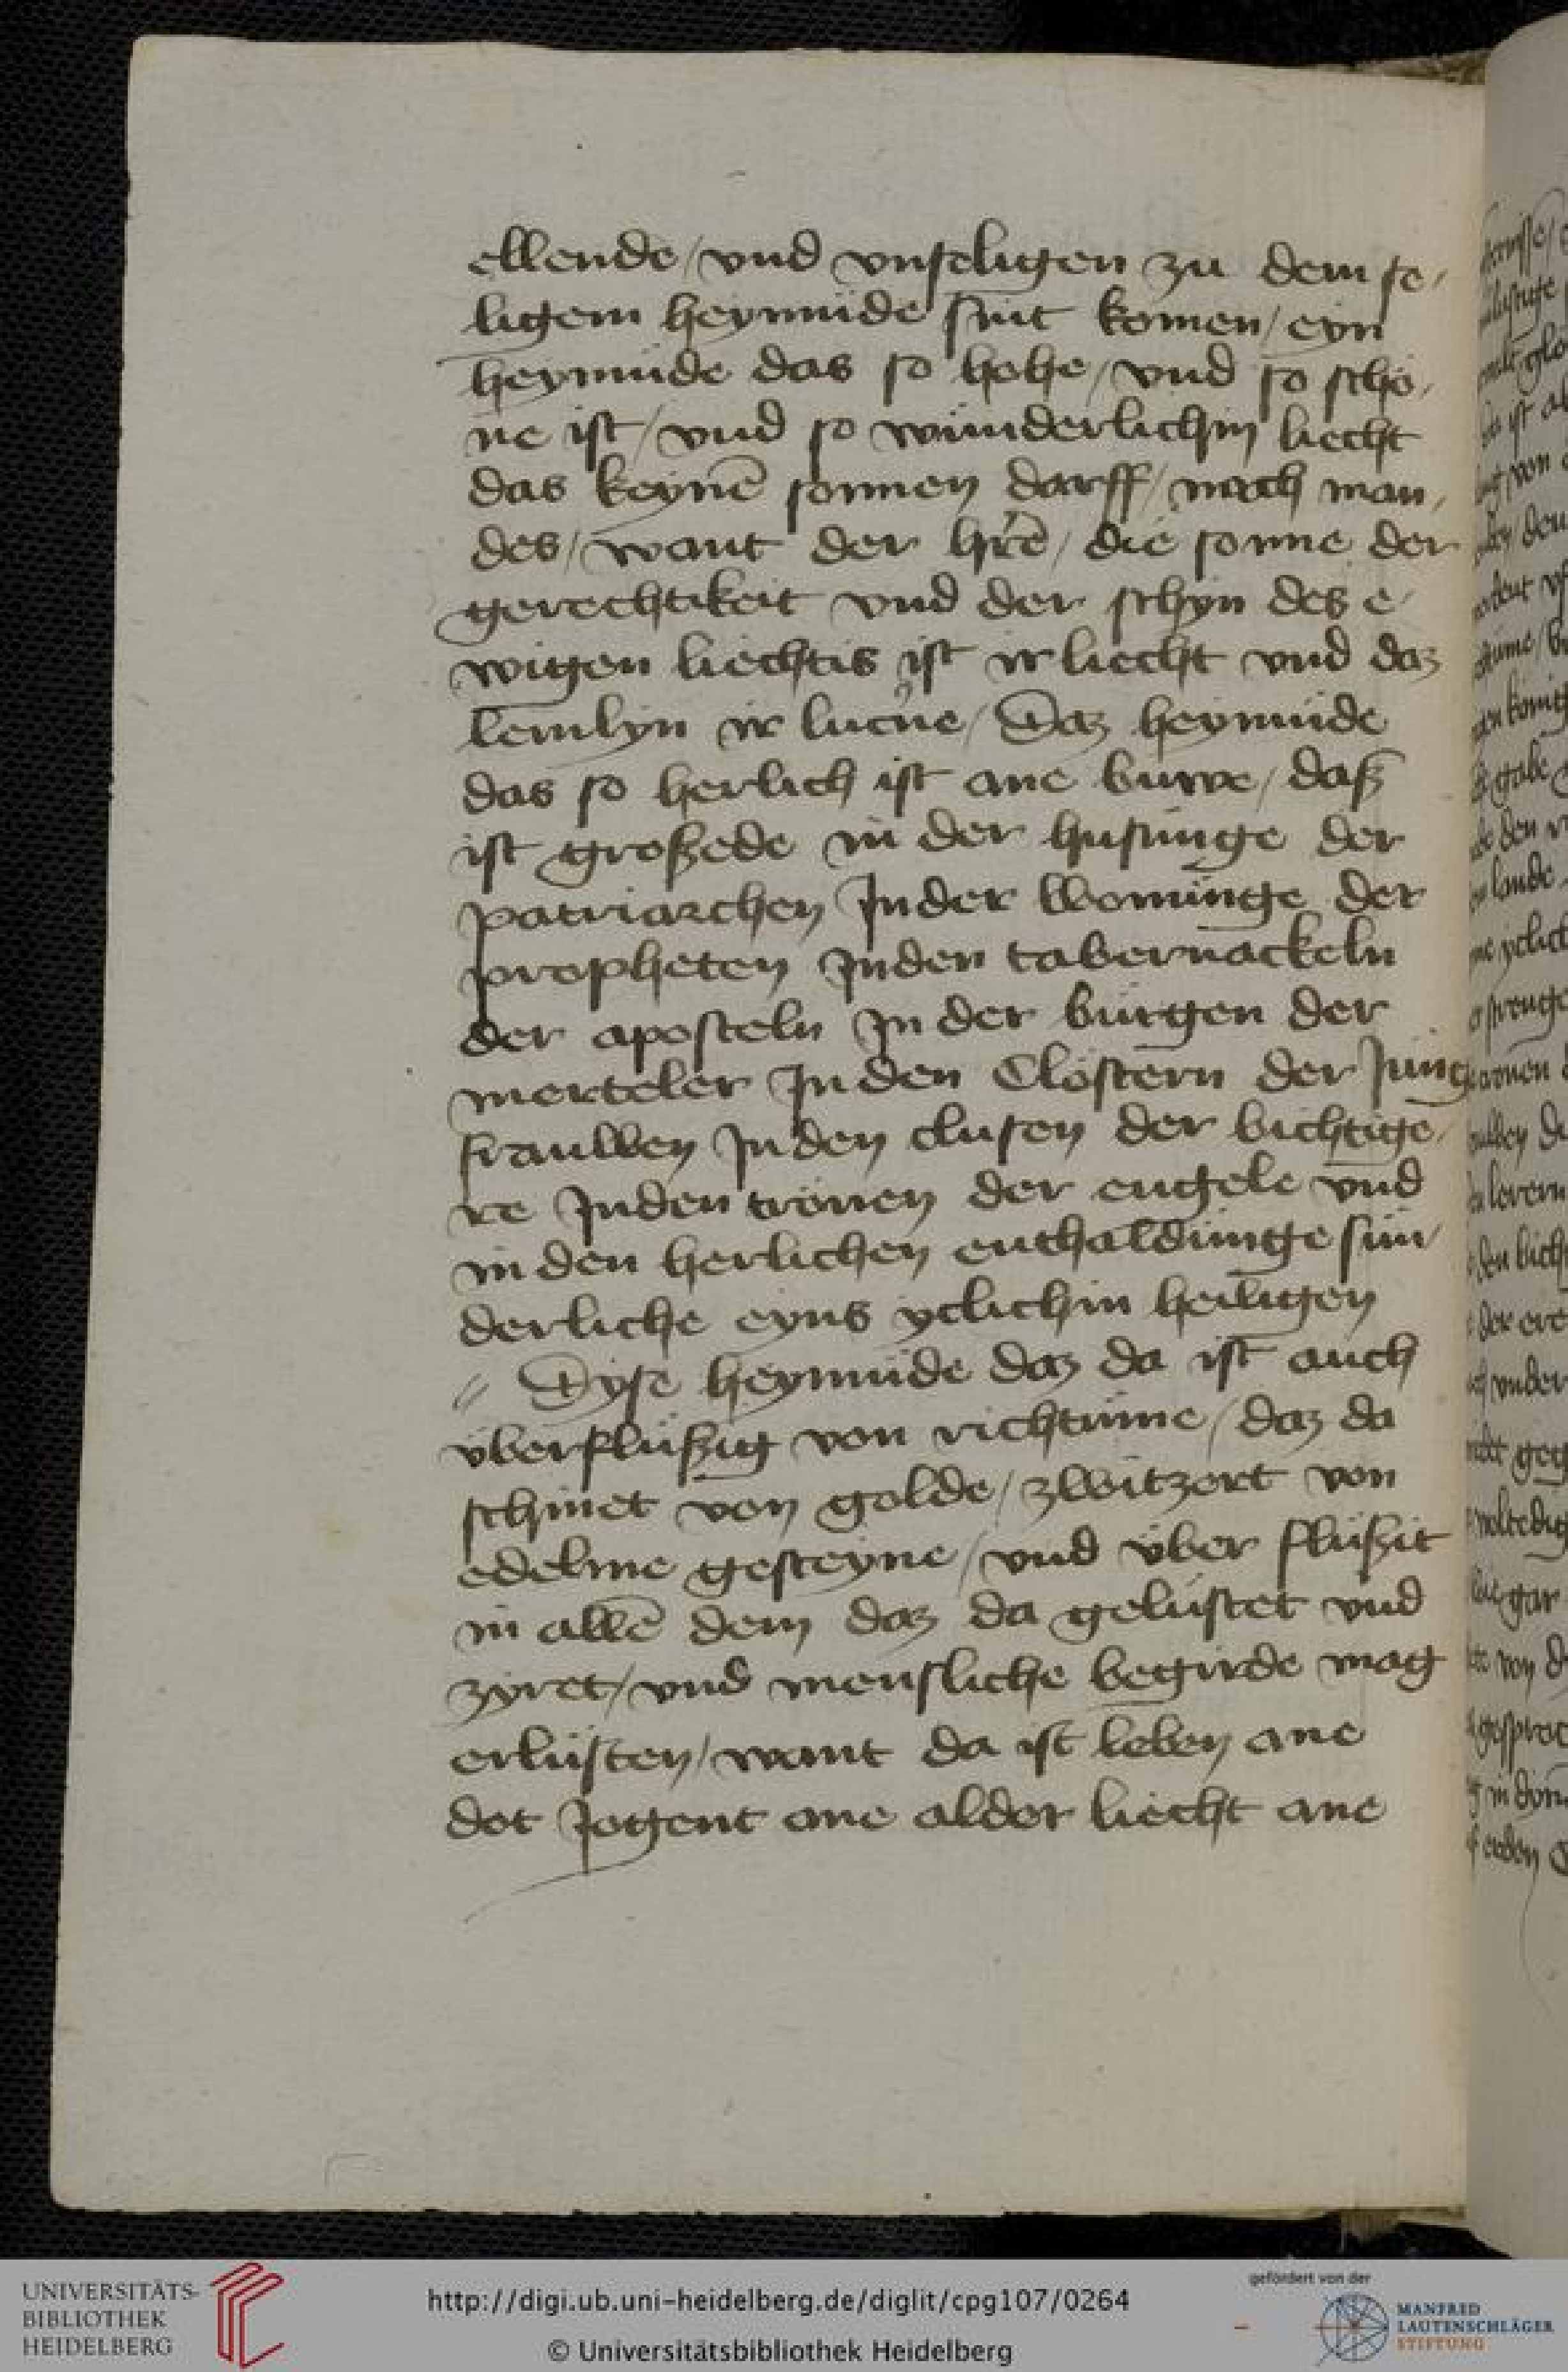 ellende / vnd vnseligen zu dem se-
ligem heymüde sint komen / eyn
heymüde das so hohe / vnd so schö-
ne ist / vnd so wünderlichin liecht
das keynē sonnen darff / nach man-
des / want der hr̄e / die sonne der
gerechtikeit vnd der schyn des e-
wigen liechtis ist ir liecht vnd daz
lemlyn ir lucn̄e / Daz heymüde
das so herlich ist ane buwe / dasz
ist groszede in der husunge der
patriarchen In der wonünge der
propheten In den tabernackeln
der aposteln In der bürgen der
merteler In den Clöstern der Jung
frauwen In den clusen der bichtige-
re In den trönen der engele vnd
in den herlichen enthaldünge sün-
derliche eyns yclichin heiligen
// Dyse heymüde daz da ist auch
überflüszig von richtüme / daz da
schinet von golde / zwitzert von
edelme gesteyne / vnd über flüszit
in allē dem daz da gelüstet vnd
zyret / vnd mensliche begirde mag
erlüsten / want da ist leben ane
dot Jogent ane alder liecht ane
UNIVERSITÄTS-
BIBLIOTHEK
HEIDELBERG
http://digi.ub.uni-heidelberg.de/diglit/cpg107/0264
© Universitätsbibliothek Heidelberg
gefördert von der
MANFRED
LAUTENSCHLÄGER
STIFTUNG